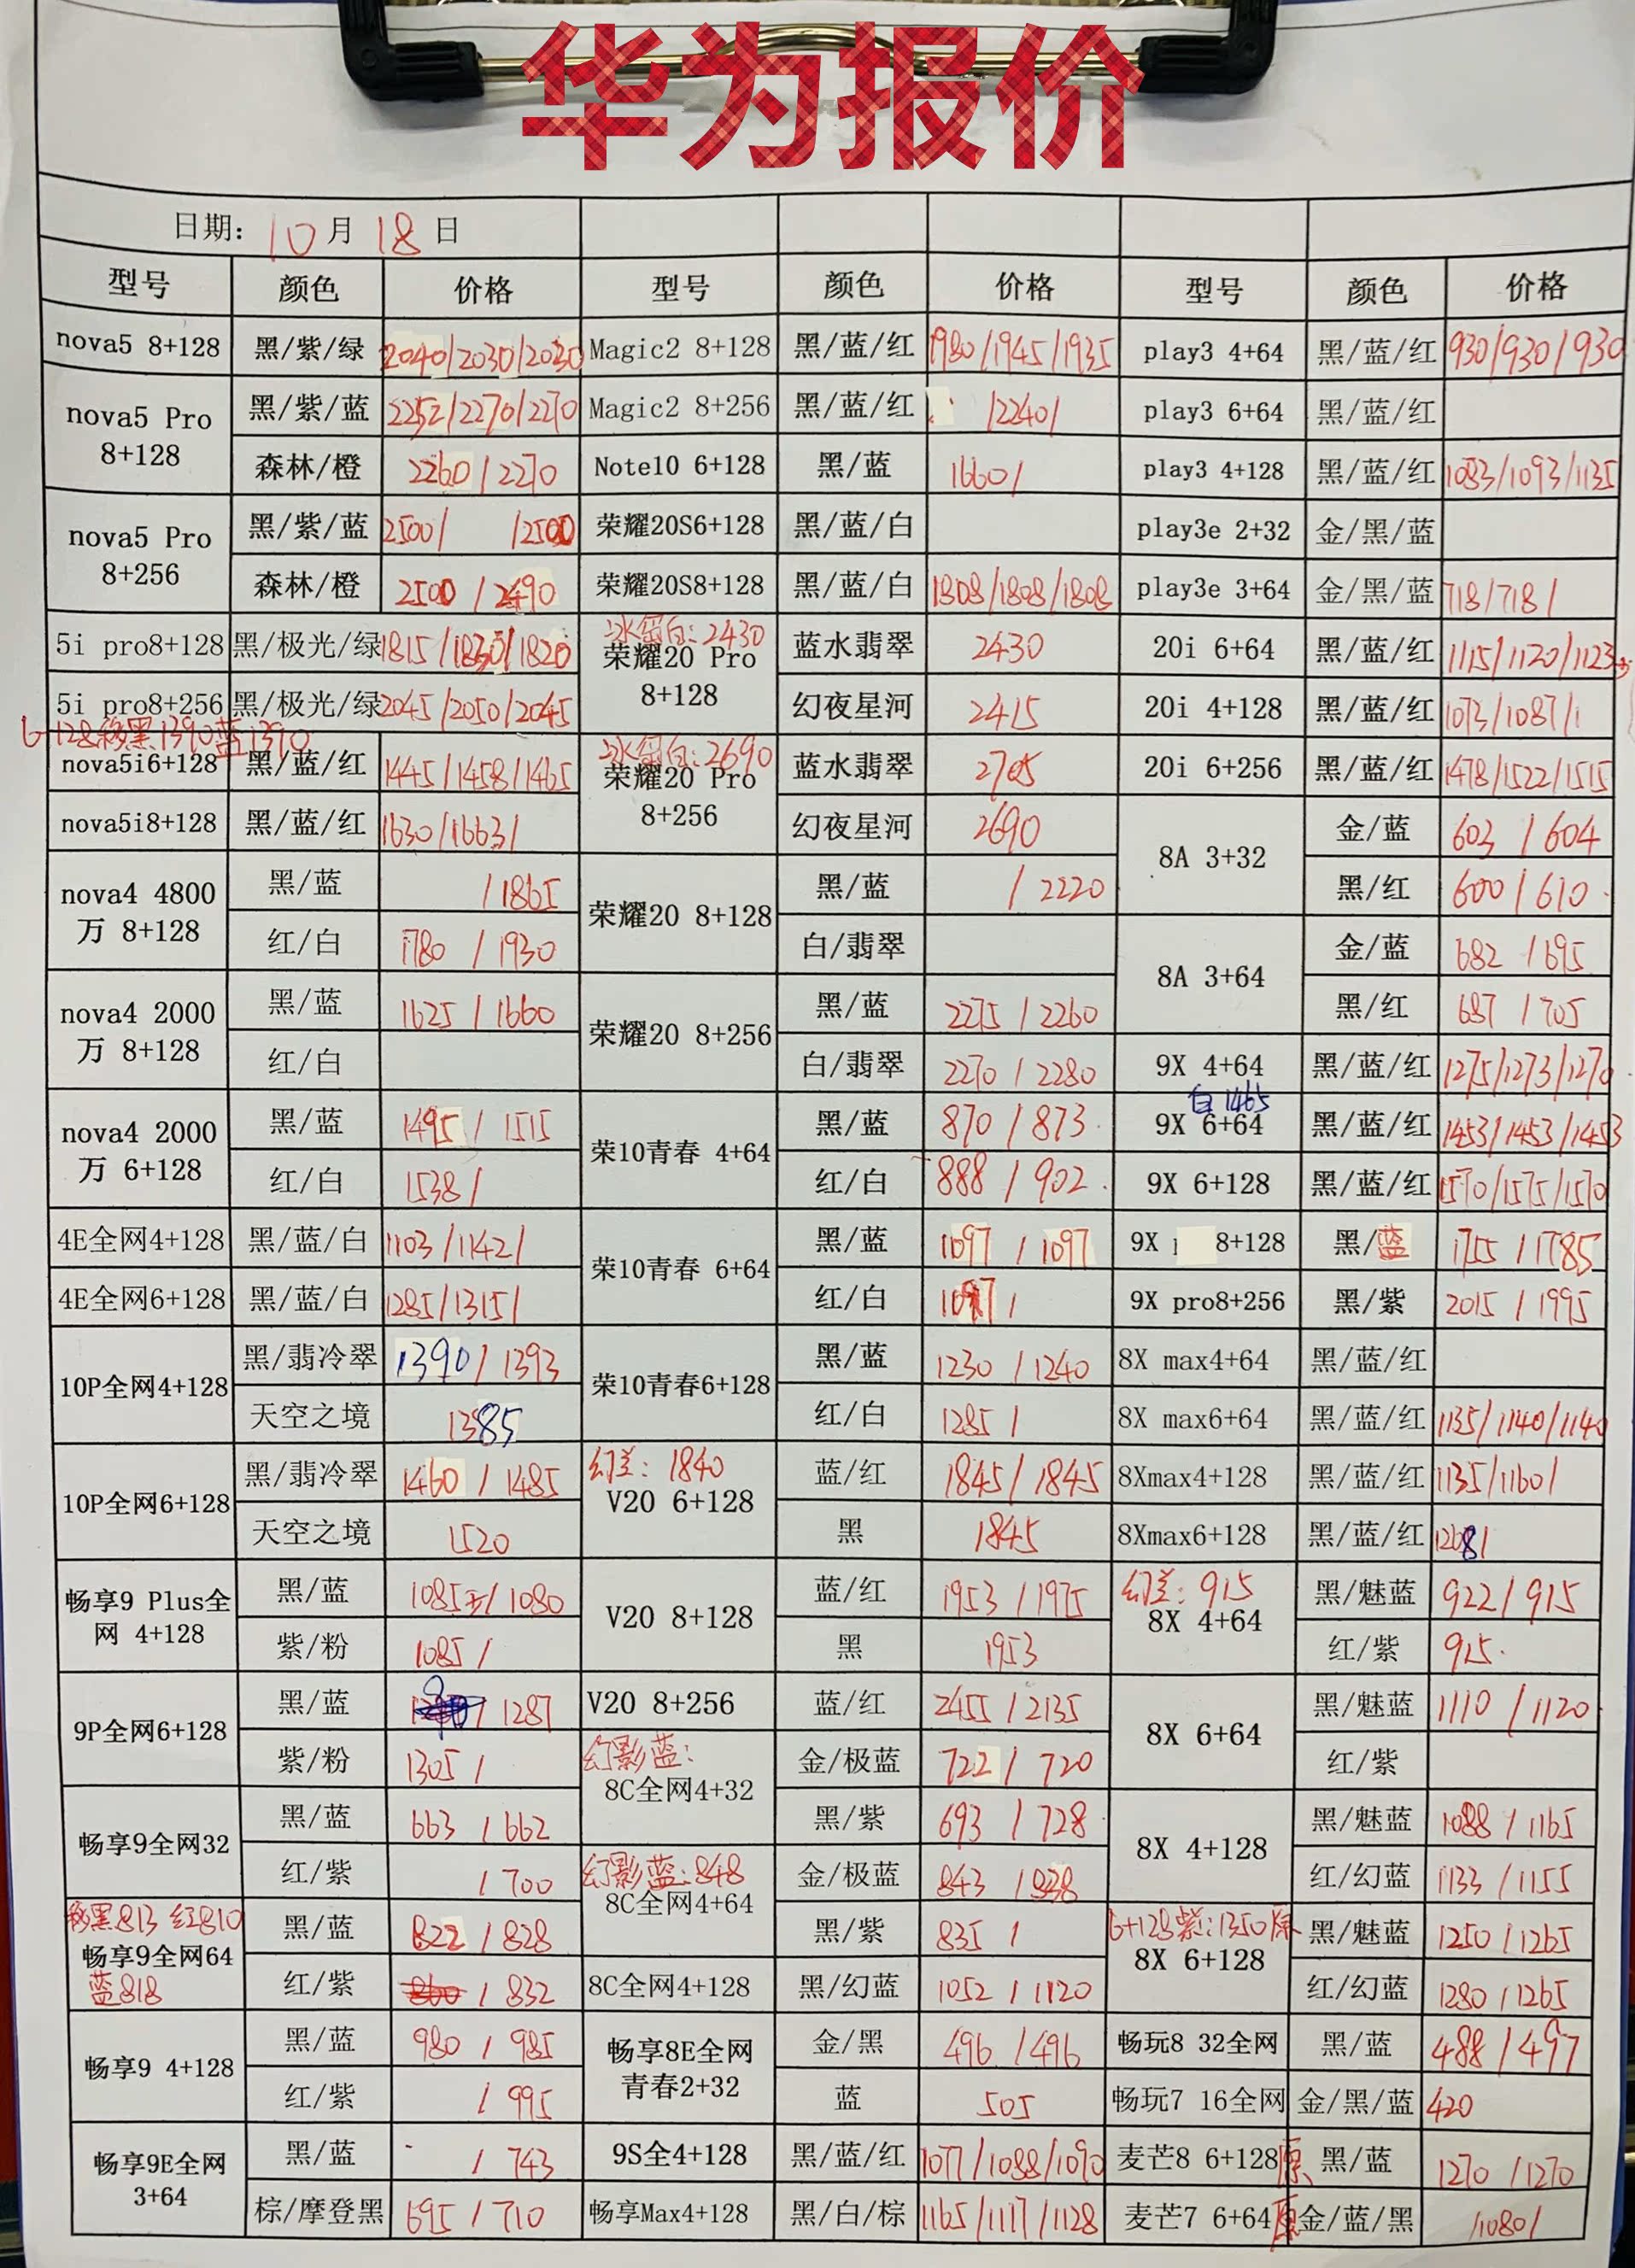 华为报价
日期: 10月18日
型号 颜色 价格 型号 颜色 价格 型号 颜色 价格
nova5 8+128 黑/紫/绿 2040/2030/2030 Magic2 8+128 黑/蓝/红 1980/1945/1935 play3 4+64 黑/蓝/红 930/930/930
nova5 Pro 8+128 黑/紫/蓝 2252/2270/2270 Magic2 8+256 黑/蓝/红 /2240/ play3 6+64 黑/蓝/红
森林/橙 2260/2270 Note10 6+128 黑/蓝 1660/ play3 4+128 黑/蓝/红 1083/1093/1135
nova5 Pro 8+256 黑/紫/蓝 2500/ /2500 荣耀20S6+128 黑/蓝/白 play3e 2+32 金/黑/蓝
森林/橙 2500/2490 荣耀20S8+128 黑/蓝/白 1808/1808/1808 play3e 3+64 金/黑/蓝 718/718/
5i pro8+128 黑/极光/绿 1815/1830/1820 冰岛白:2430 荣耀20 Pro 8+128 蓝水翡翠 2430 20i 6+64 黑/蓝/红 1115/1120/1123
5i pro8+256 黑/极光/绿 2045/2050/2045 幻夜星河 2415 20i 4+128 黑/蓝/红 1073/1087/
6+128移黑1390蓝1390
nova5i6+128 黑/蓝/红 1445/1458/1465 冰岛白:2690 荣耀20 Pro 8+256 蓝水翡翠 2705 20i 6+256 黑/蓝/红 1478/1522/1515
nova5i8+128 黑/蓝/红 1630/1663/ 幻夜星河 2690 8A 3+32 金/蓝 603/604
nova4 4800万 8+128 黑/蓝 /1865 荣耀20 8+128 黑/蓝 /2220 黑/红 600/610
红/白 1780/1930 白/翡翠 8A 3+64 金/蓝 682/695
nova4 2000万 8+128 黑/蓝 1625/1660 荣耀20 8+256 黑/蓝 2275/2260 黑/红 687/705
红/白 白/翡翠 2270/2280 9X 4+64 黑/蓝/红 1275/1273/1270
nova4 2000万 6+128 黑/蓝 1495/1515 荣10青春 4+64 黑/蓝 870/873 白1465 9X 6+64 黑/蓝/红 1453/1453/1453
红/白 1538/ 红/白 888/902 9X 6+128 黑/蓝/红 1570/1575/1570
4E全网4+128 黑/蓝/白 1103/1142/ 荣10青春 6+64 黑/蓝 1097/1097 9X 8+128 黑/蓝 1755/1785
4E全网6+128 黑/蓝/白 1285/1315/ 红/白 1097/ 9X pro8+256 黑/紫 2015/1995
10P全网4+128 黑/翡冷翠 1390/1393 荣10青春6+128 黑/蓝 1230/1240 8X max4+64 黑/蓝/红
天空之境 1385 红/白 1285/ 8X max6+64 黑/蓝/红 1135/1140/1140
10P全网6+128 黑/翡冷翠 1460/1485 幻兰:1840 V20 6+128 蓝/红 1845/1845 8Xmax4+128 黑/蓝/红 1135/1160/
天空之境 1520 黑 1845 8Xmax6+128 黑/蓝/红 1208/
畅享9 Plus全网 4+128 黑/蓝 1085/1080 V20 8+128 蓝/红 1953/1975 幻兰:915 8X 4+64 黑/魅蓝 922/915
紫/粉 1085/ 黑 1953 红/紫 925
9P全网6+128 黑/蓝 /1287 V20 8+256 蓝/红 2455/2135 8X 6+64 黑/魅蓝 1110/1120
紫/粉 1305/ 幻影蓝: 8C全网4+32 金/极蓝 722/720 红/紫
畅享9全网32 黑/蓝 663/662 黑/紫 693/728 8X 4+128 黑/魅蓝 1088/1165
红/紫 /700 幻影蓝:848 8C全网4+64 金/极蓝 843/838 红/幻蓝 1133/1155
移黑813 红810 畅享9全网64 蓝818 黑/蓝 822/828 黑/紫 835/ 6+128紫:1350 8X 6+128 黑/魅蓝 1250/1265
红/紫 860/832 8C全网4+128 黑/幻蓝 1052/1120 红/幻蓝 1280/1265
畅享9 4+128 黑/蓝 980/985 畅享8E全网青春2+32 金/黑 496/496 畅玩8 32全网 黑/蓝 488/497
红/紫 /995 蓝 505 畅玩7 16全网 金/黑/蓝 420
畅享9E全网 3+64 黑/蓝 /743 9S全4+128 黑/蓝/红 1077/1088/1090 麦芒8 6+128原 黑/蓝 1270/1270
棕/摩登黑 695/710 畅享Max4+128 黑/白/棕 1165/1117/1128 麦芒7 6+64原 金/蓝/黑 /1080/